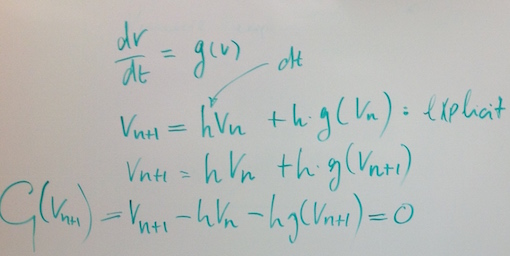 dv/dt = g(v)
dt
V_{n+1} = hV_n + h·g(V_n) : explicit
V_{n+1} = hV_n + h·g(V_{n+1})
G(V_{n+1}) = V_{n+1} - hV_n - hg(V_{n+1}) = 0